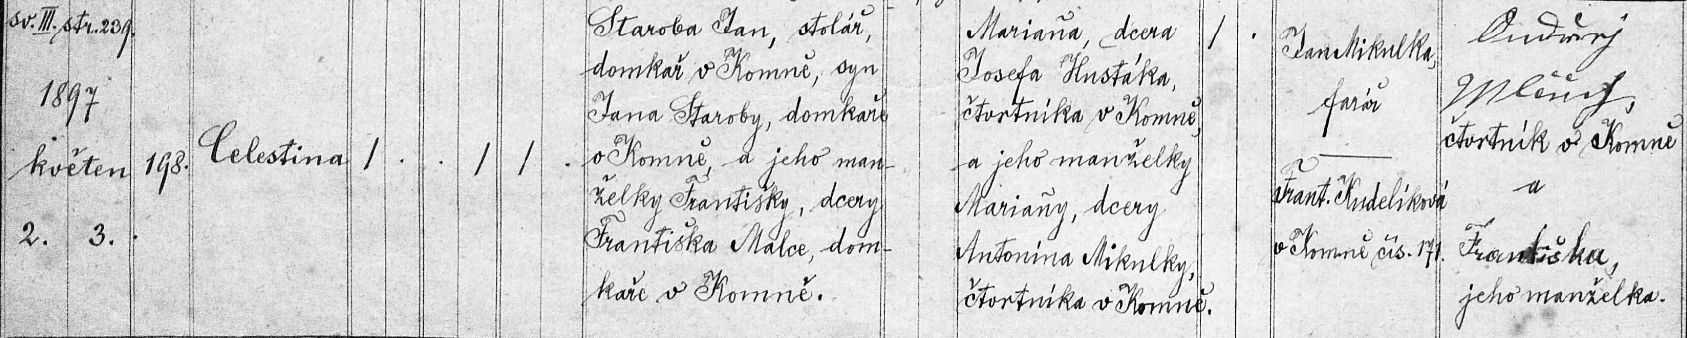 sv. III. str. 239.
1897
květen
2. 3.
198.
Celestina
/ . . / / .
Staroba Jan, stolář,
domkař v Komně, syn
Jana Staroby, domkaře
v Komně, a jeho man-
želky Františky, dcery
Františka Malce, dom-
kaře v Komně.
Mariana, dcera
Josefa Husťáka,
čtvrtníka v Komně,
a jeho manželky
Mariany, dcery
Antonína Mikulky,
čtvrtníka v Komně.
/ .
Jan Mikulka,
farář
Frant. Kudelíková
v Komně čís. 171.
Ondřej
čtvrtník v Komně
a
Františka,
jeho manželka.